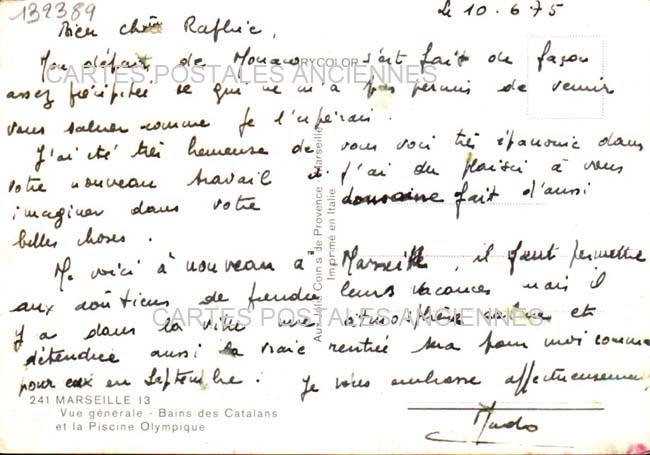 132389
Le 10.6.75
Bien chère
Mon départ de Monaco s'est fait de façon
assez précipitée ce qui ne m'a pas permis de venir
vous saluer comme je l'espérais.
J'ai été très heureuse de vous voir très épanouie dans
votre nouveau travail et j'ai du plaisir à vous
imaginer dans votre domaine fait d'aussi
belles choses.
Me voici à nouveau à Marseille, il faut permettre
aux aoûtiens de prendre leurs vacances mais il
y a dans la ville une atmosphère calme et
détendue aussi la vraie rentrée sera pour moi comme
pour eux en Septembre. Je vous embrasse affectueusement
Mado
CARTES POSTALES ANCIENNES
CARTES POSTALES ANCIENNES
RYCOLOR
Aux Jolis Coins de Provence Marseille
Imprimé en Italie
241 MARSEILLE 13
Vue générale - Bains des Catalans
et la Piscine Olympique